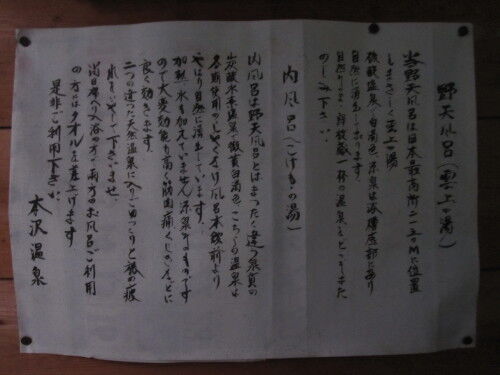 野天風呂(雲上の湯)
当野天風呂は日本最高所二一五〇Mに位置
しまさしく雲上の湯
硫酸塩温泉で白濁色、泉源は湯槽底部にあり
自然に湧き出しております。
自然のまま、鮮明
温泉をどうぞ
のしみ下さい。
内風呂(こけももの湯)
内風呂は野天風呂とはまったく違う泉質の
炭酸水素温泉で微黄白濁色、こちらの温泉は
冬期使用のしゃくなげ風呂本館前より
やはり自然に湧き出しています。
加熱、水も加えていません、源泉そのものです
ので大変効能も高く筋肉痛くじきなどに
良く効きます。
二つの違った天然温泉に入りごゆっくりと旅の疲
れをいやして下さいませ。
尚日帰り入浴の方で両方のお風呂ご利用
の方はタオルを差上げます
是非ご利用下さい。
本沢温泉